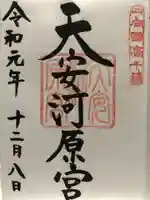 天安河原宮
令和元年 十二月八日